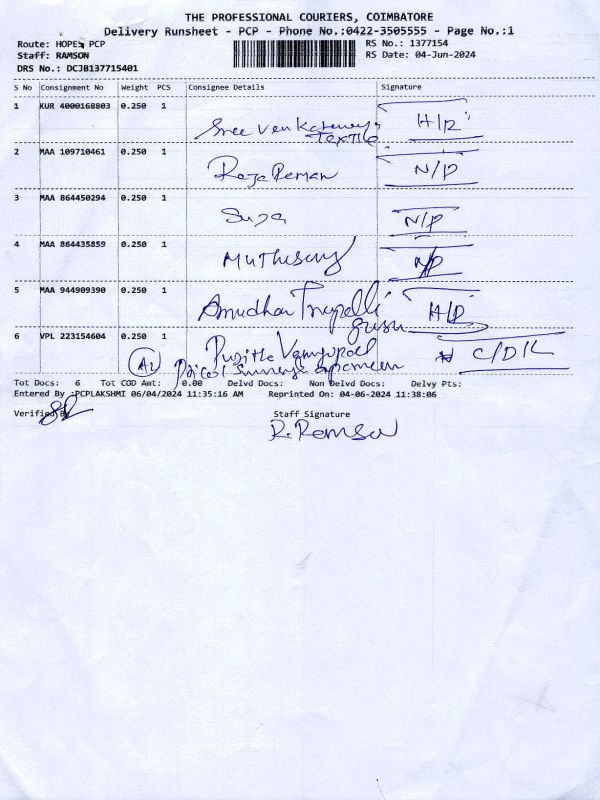 THE PROFESSIONAL COURIERS, COIMBATORE
Delivery Runsheet - PCP - Phone No.:0422-3505555 - Page No.:1
Route: HOPES PCP
RS No.: 1377154
Staff: RAMSON
RS Date: 04-Jun-2024
DRS No.: DCJB137715401
S No Consignment No Weight PCS Consignee Details Signature
1 KUR 4000168803 0.250 1
Sree Venkateswara H/R
Textile
2 MAA 109710461 0.250 1
Raja Raman N/P
3 MAA 864450294 0.250 1
N/P
4 MAA 864435859 0.250 1
Muthusamy N/P
5 MAA 944909390 0.250 1
H/D
6 VPL 223154604 0.250 1
C/D/L
Tot Docs: 6 Tot COD Amt: 0.00 Delvd Docs: Non Delvd Docs: Delvy Pts:
Entered By :PCPLAKSHMI 06/04/2024 11:35:16 AM Reprinted On: 04-06-2024 11:38:06
Verified By
Staff Signature
R. Ramson